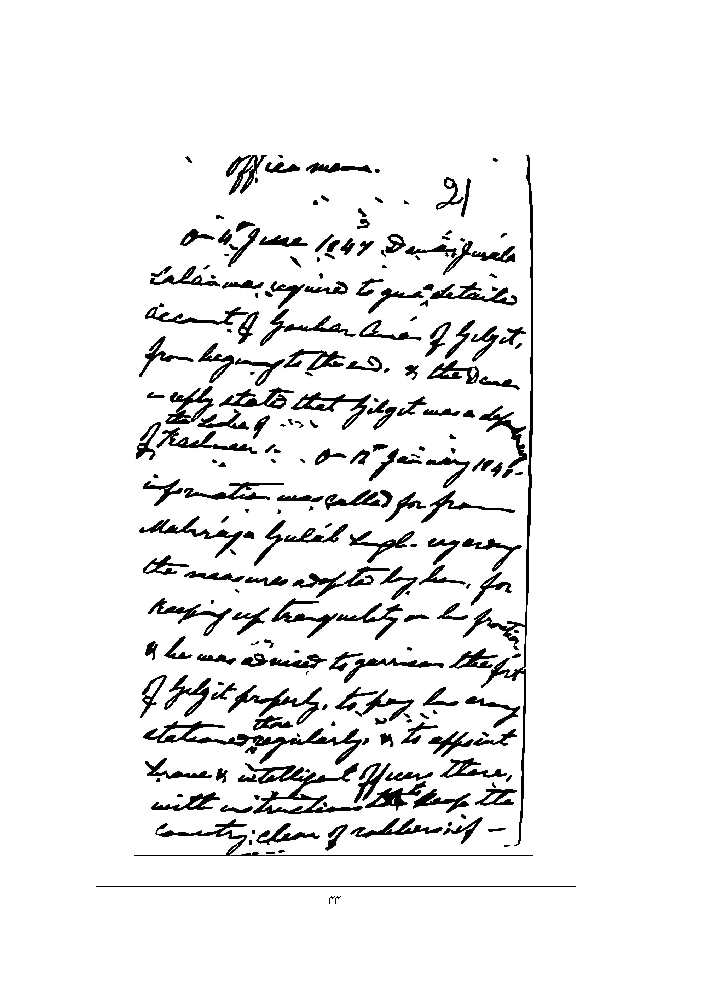 Office memo.
21
On 4th June 1847 Dewan Juala
Sahai was required to give detailed
account of Gouhar Amán of Gilgit,
from beginning to the end. & the Dewan
in reply stated that Gilgit was a
the Suba of
of Kashmeer. On 12th January 1848
information was called for from
Mahrája Guláb Singh regarding
the measures adopted by him, for
keeping up tranquility on his frontier
& he was advised to garrison the fort
of Gilgit properly, to pay his army
there
stationed regularly, & to appoint
brave & intelligent officers there,
with instructions to keep the
country clear of robbers if —
٣٣